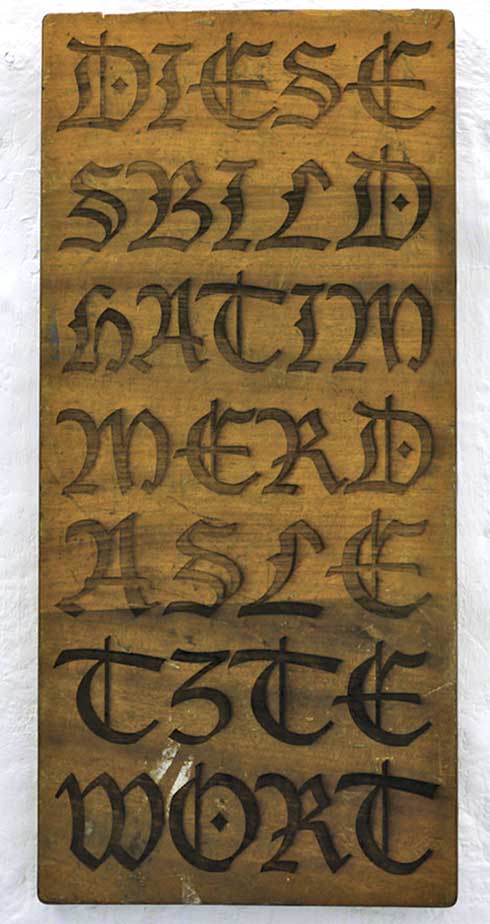 DIESE
SBILD
HATIM
MERD
ASLE
TZTE
WORT